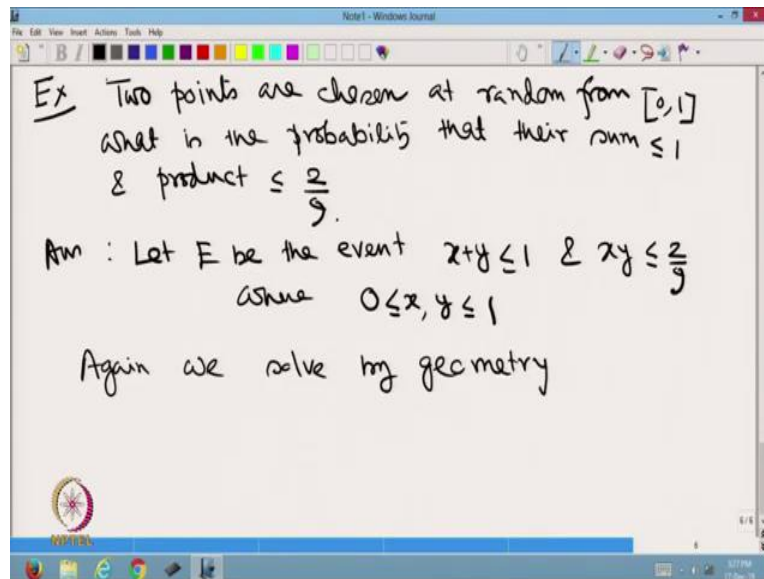 Note1 - Windows Journal
File Edit View Insert Actions Tools Help
Ex Two points are chosen at random from [0,1]
what is the probability that their sum ≤ 1
& product ≤ 2/9.
Ans : Let E be the event x+y ≤ 1 & xy ≤ 2/9
where 0 ≤ x, y ≤ 1
Again we solve by geometry
NPTEL
6/6
6
3:27 PM